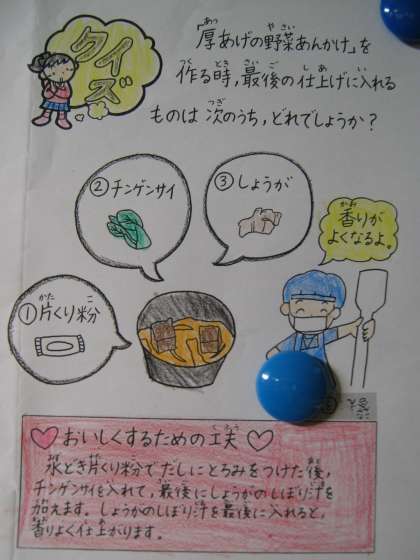 クイズ
「厚あげの野菜あんかけ」を
作る時,最後の仕上げに入れる
ものは次のうち,どれでしょうか?
②チンゲンサイ
③しょうが
香りが
よくなるよ。
①片くり粉
おいしくするための工夫
水どき片くり粉でだしにとろみをつけた後,
チンゲンサイを入れて,最後にしょうがのしぼり汁を
加えます。しょうがのしぼり汁を最後に入れると,
香りよく仕上がります。